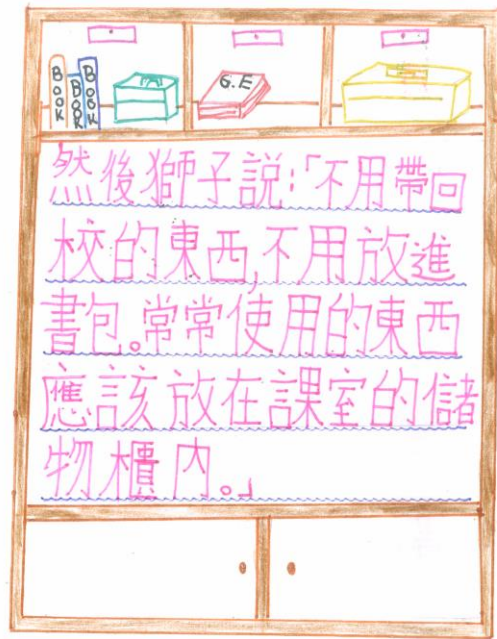 BOOK
BOOK
BOOK
G.E
然後獅子説:「不用帶回
校的東西,不用放進
書包。常常使用的東西
應該放在課室的儲
物櫃内。」